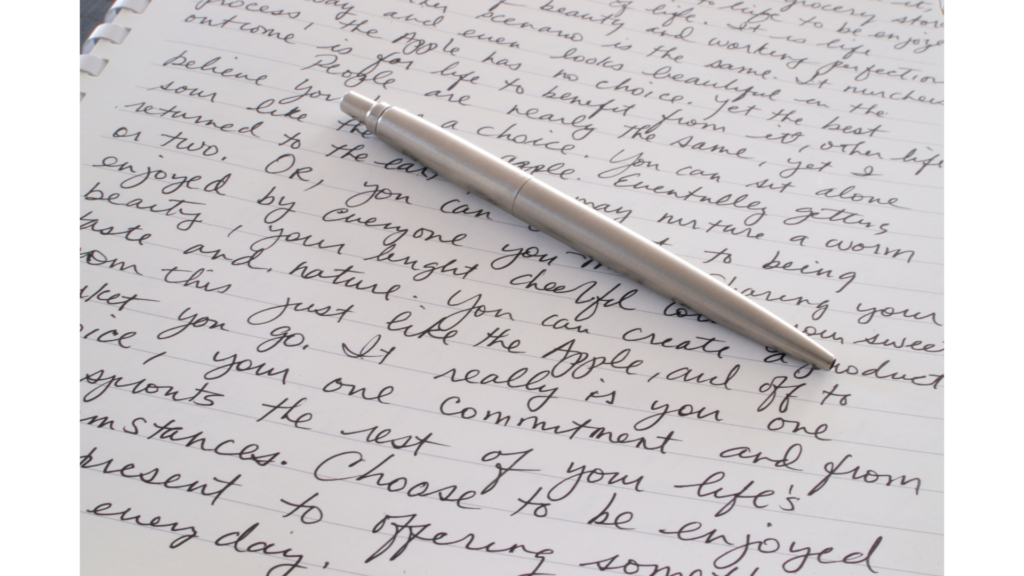 grocery store
of life. It is life to be enjoye
beauty and working perfection
scenario is the same. It nurches
process, the Apple even looks beautiful in the
outcome is for life has no choice. Yet the best
People to benefit from it, other life
believe you are nearly the same, yet I
sour like the a choice. You can sit alone
returned to the ear apple. Eventually getting
or two. Or, you can may nurture a worm
enjoyed by everyone you to being
beauty, your bright cheerful haring your
taste and nature. You can create your sweet
om this just like the Apple, and off to roduct
ket you go. It really is you one
ice, your one commitment and from
sprouts the rest of your life's
mstances. Choose to be enjoyed
present to offering
every day.